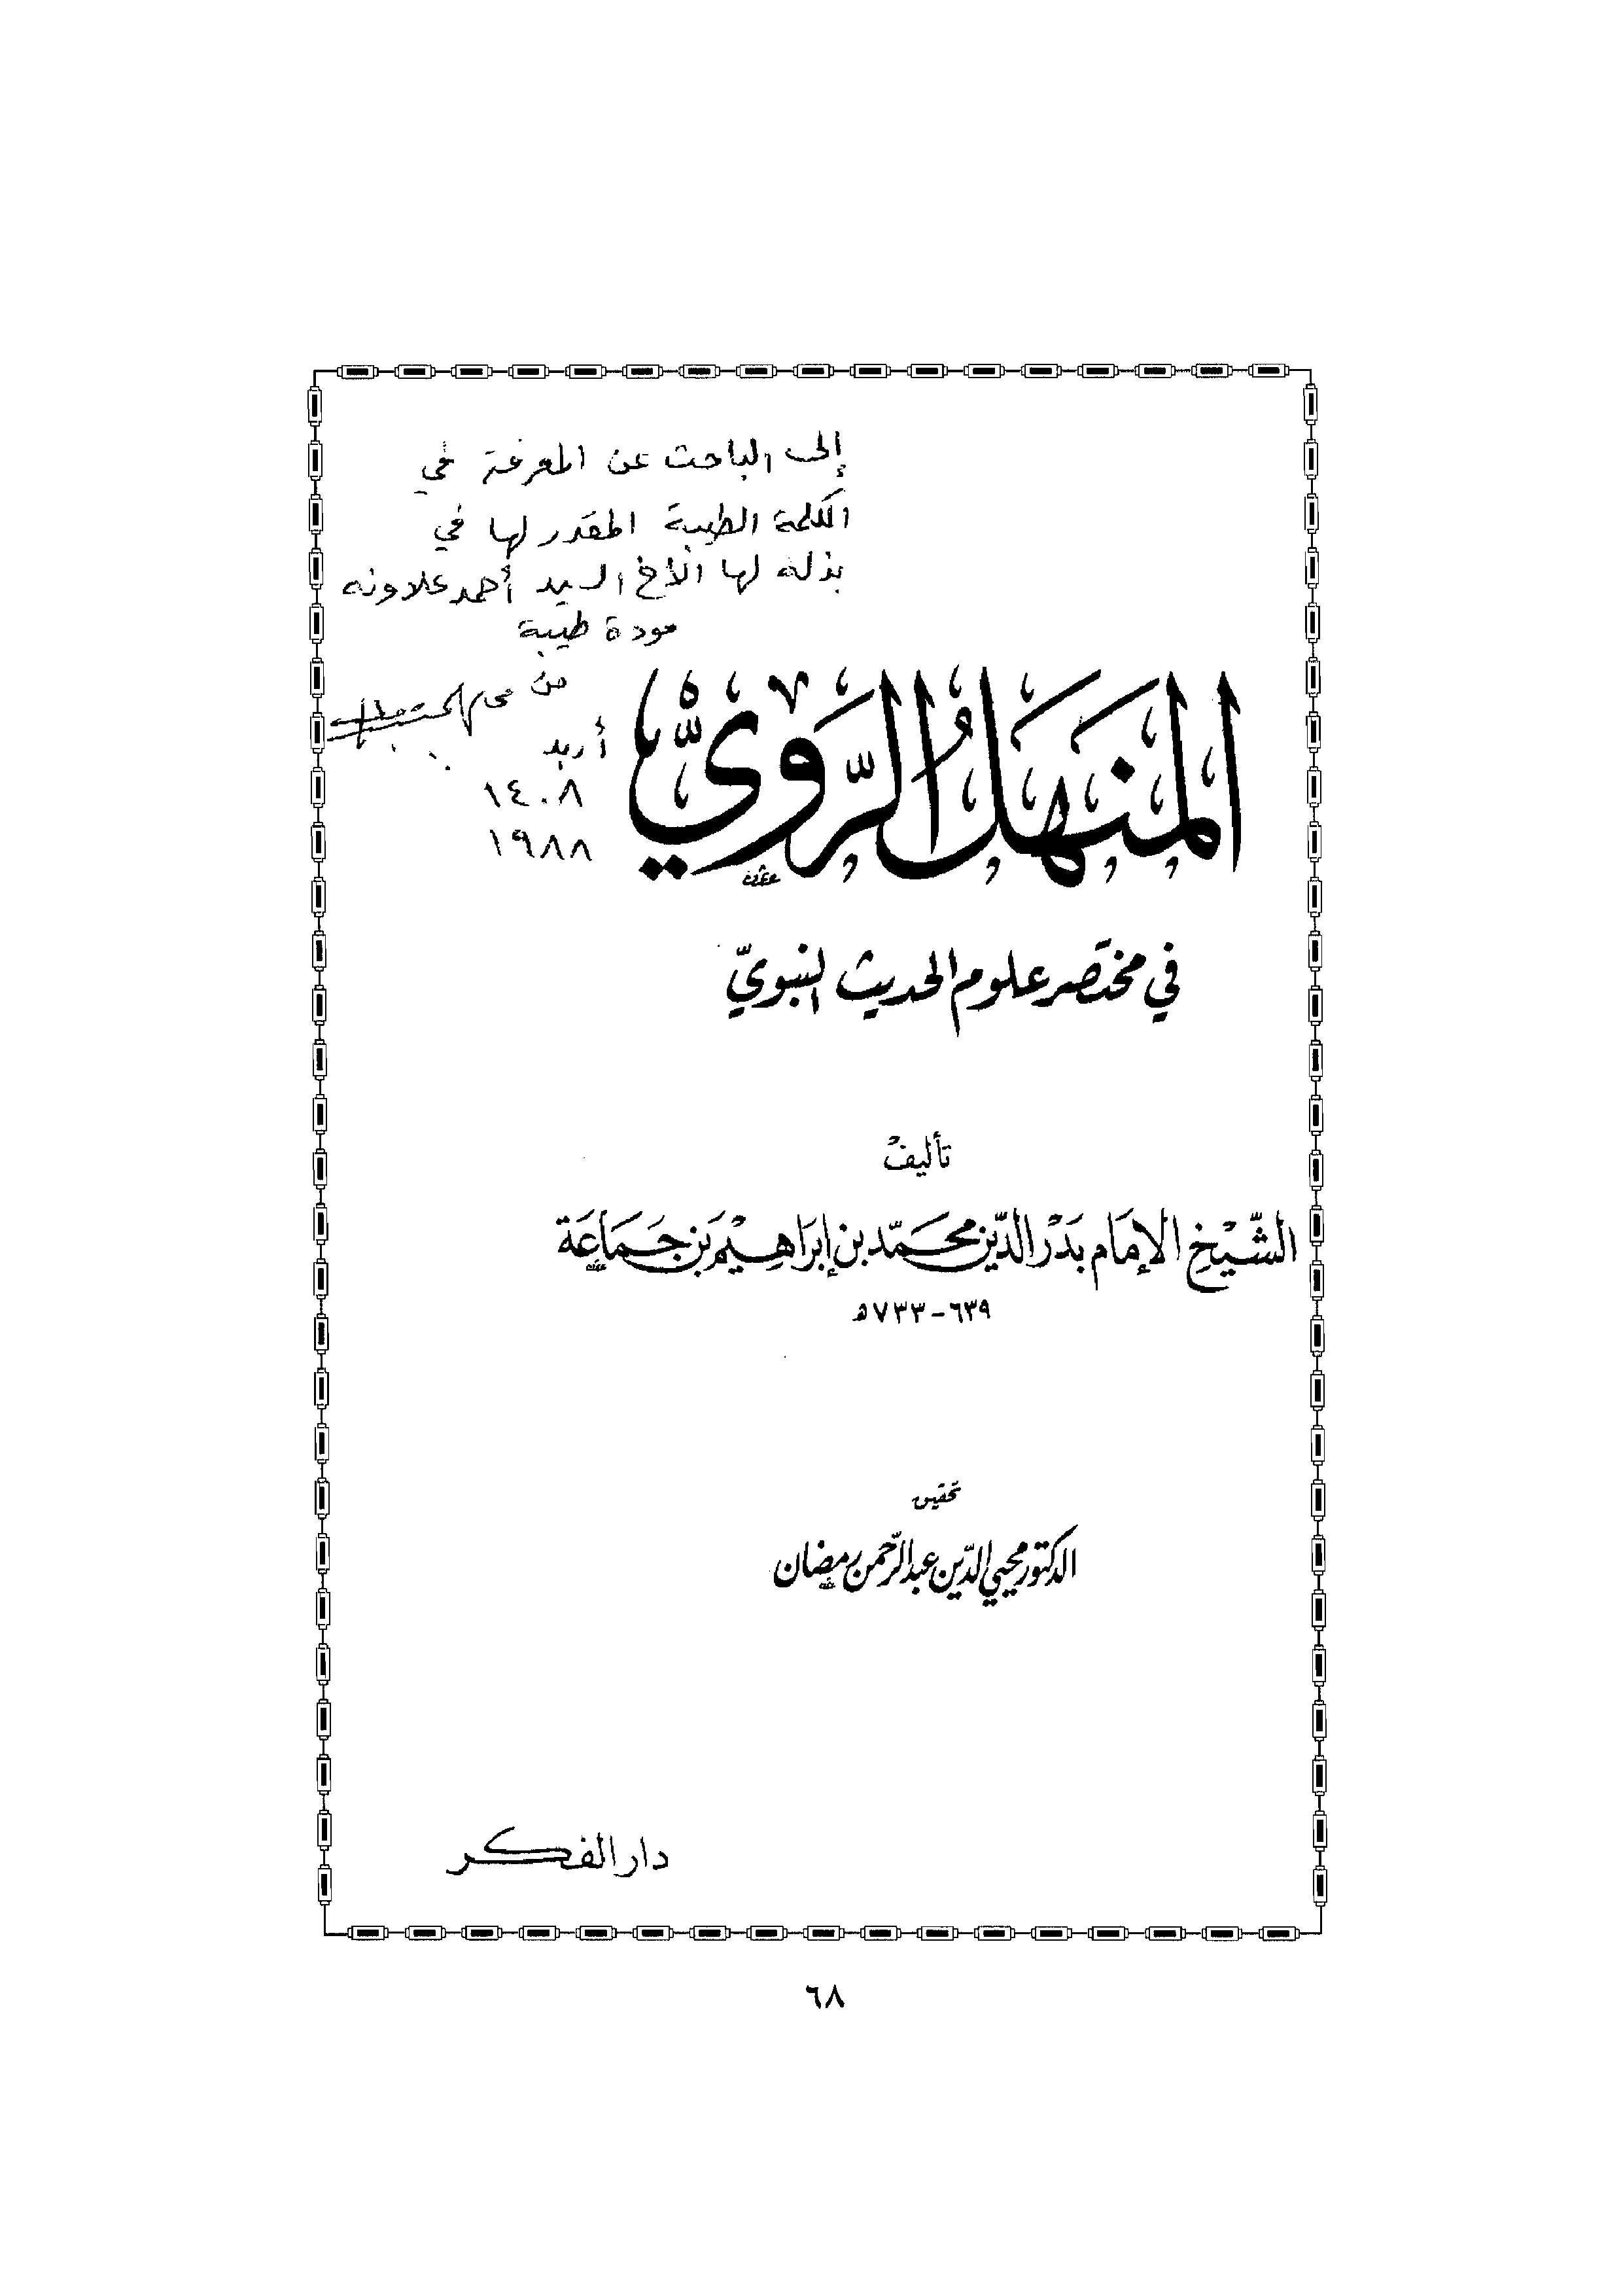 إلى الباحث عن المعرفة في
الكلمة الطيبة المقدر لها في
بذله لها الأخ السيد أحمد علاونه
مودة طيبة
من
أربد
١٤٠٨
١٩٨٨
المَنهَلُ الرَّوِيّ
في مختصر علوم الحديث النبويّ
تأليف
الشَّيْخ الإمَام بَدْر الدّين محَمّد بن إبرَاهِيْم بَن جَمَاعَة
٦٣٩ - ٧٣٣ هـ
تحقيق
الدكتور محيي الدّين عبد الرّحمن رمضان
دار الفكر
٦٨